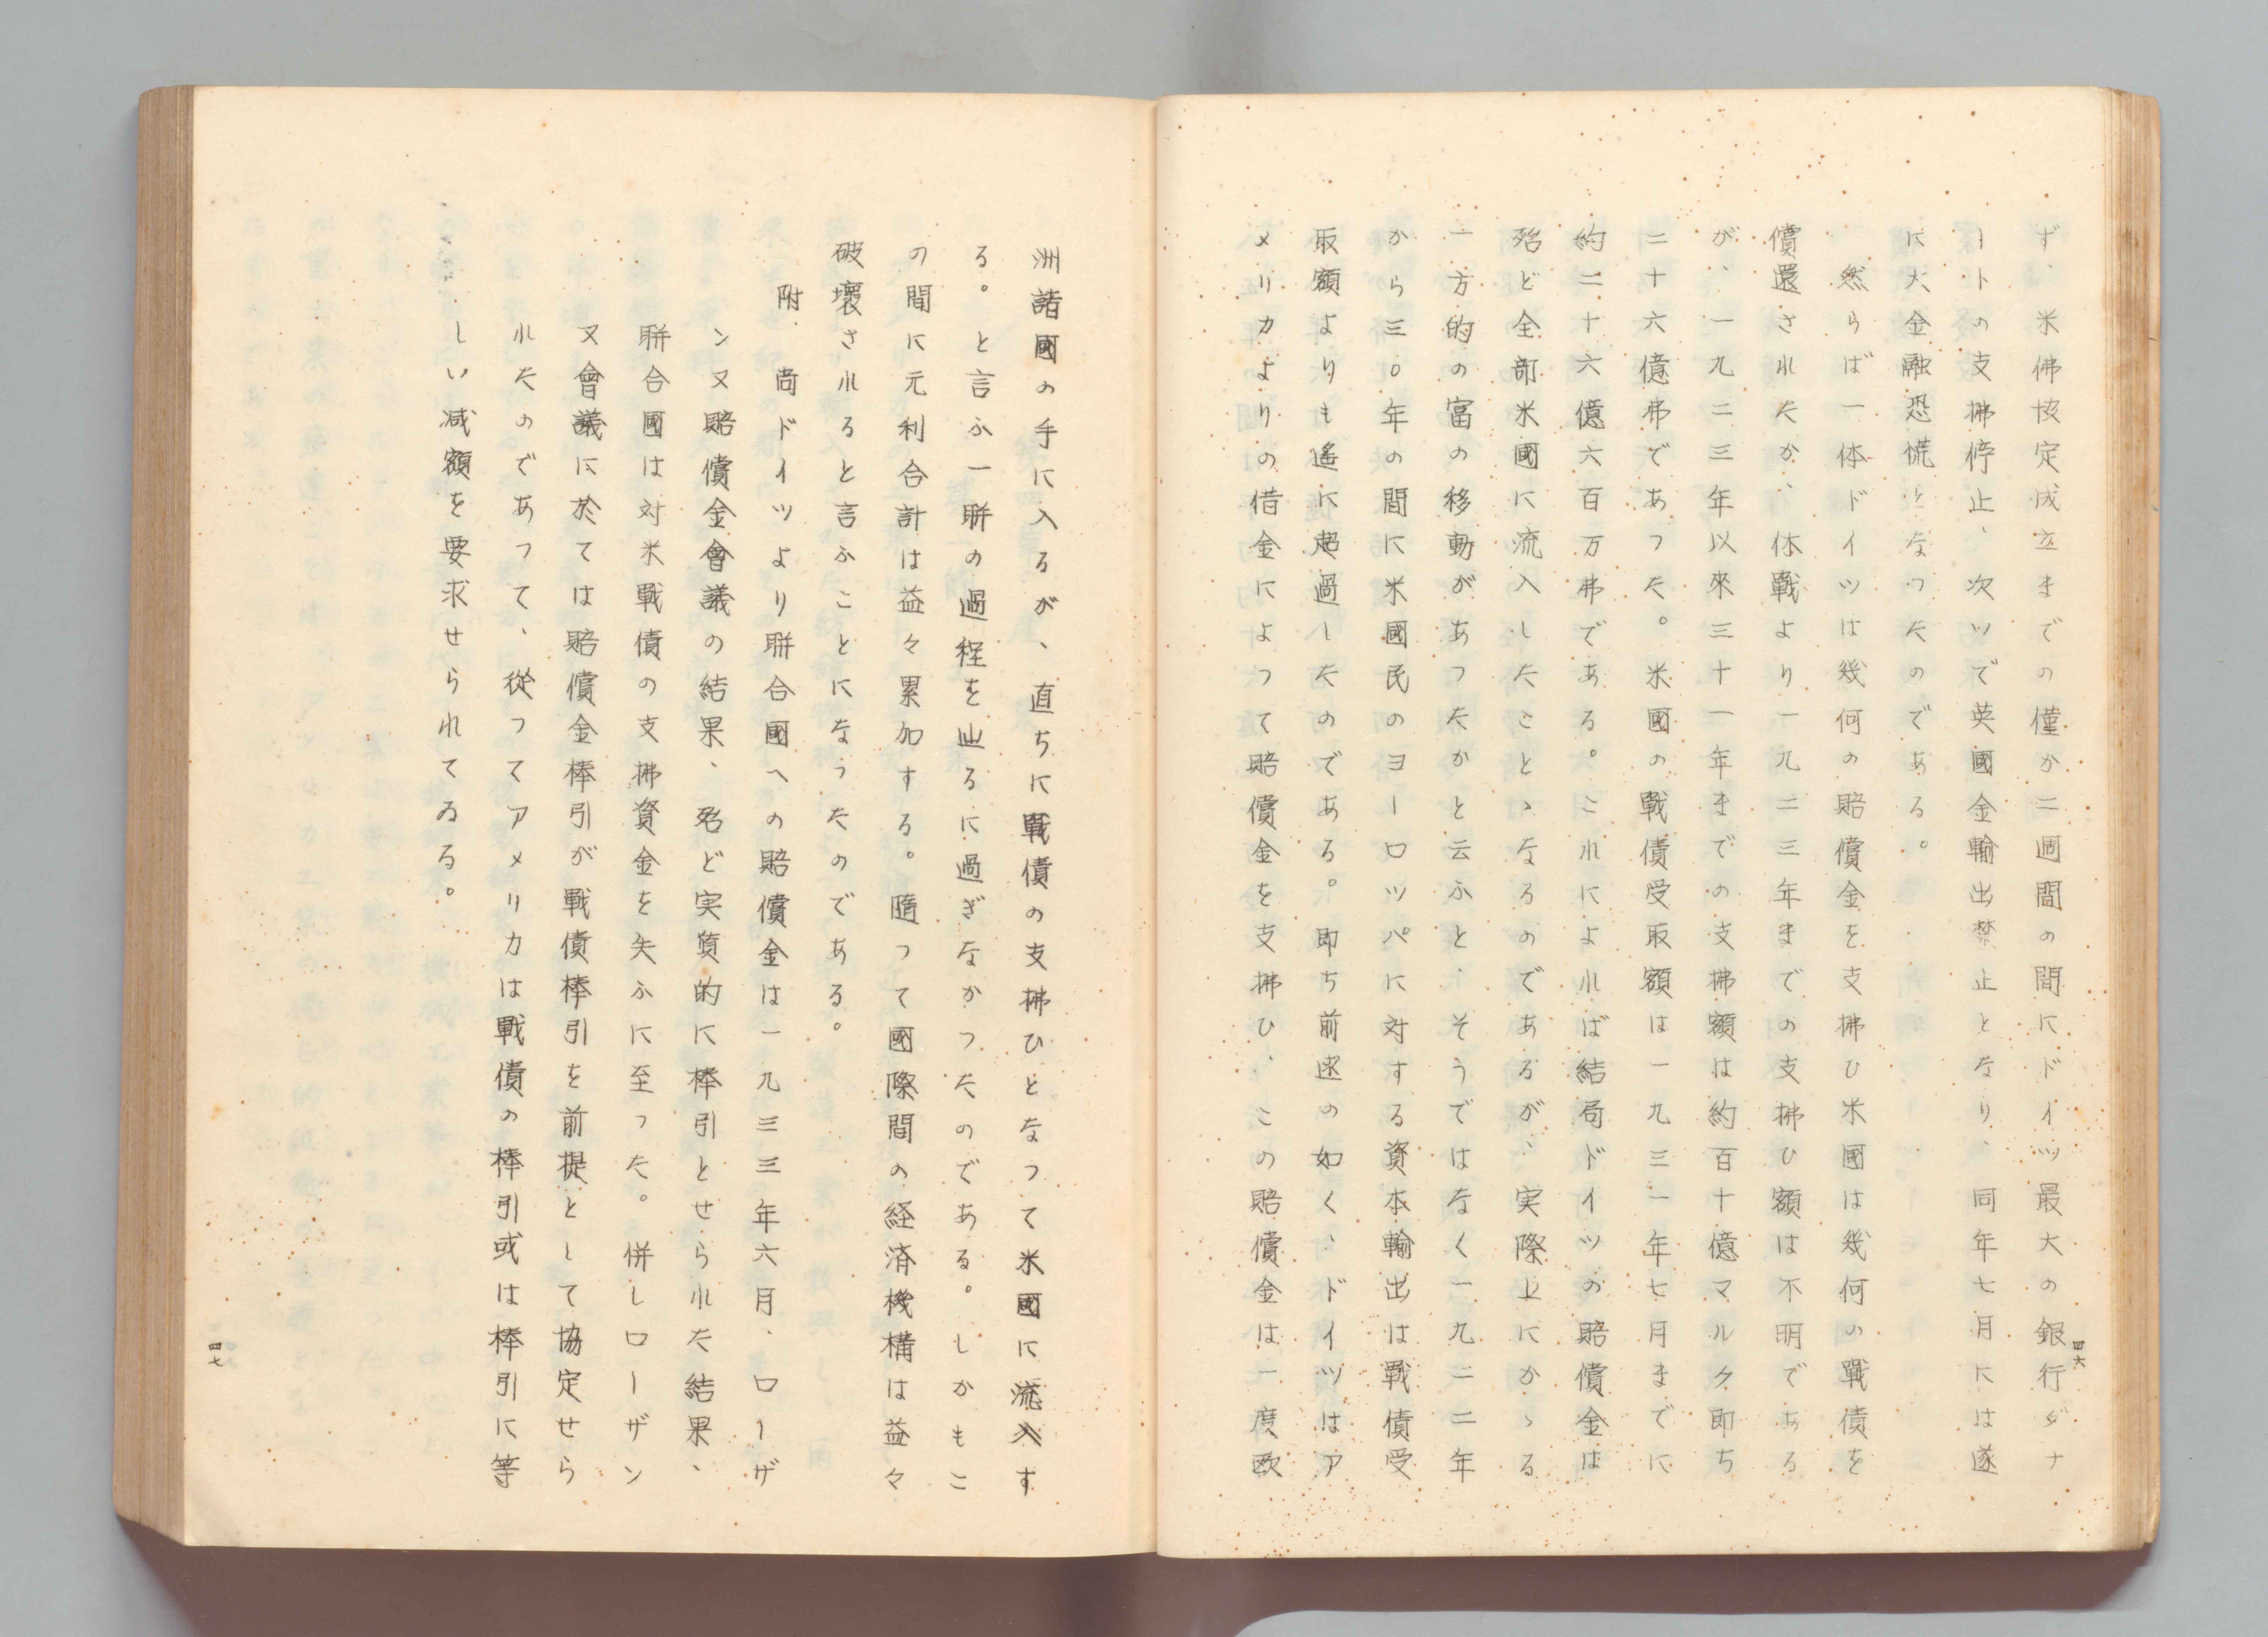 ず、米佛協定成立までの僅か二週間の間にドイツ最大の銀行ダナ
ートの支拂停止、次ツで英國金輸出禁止となり、同年七月には遂
に大金融恐慌となつたのである。
然らば一体ドイツは幾何の賠償金を支拂ひ米國は幾何の戰債を
償還されたか、休戰より一九二三年までの支拂ひ額は不明である
が、一九二三年以來三十一年までの支拂額は約百十億マルク即ち
二十六億弗であつた。米國の戰債受取額は一九三一年七月までに
約二十六億六百万弗である。これによれば結局ドイツの賠償金は
殆ど全部米國に流入したことゝなるのであるが、実際上にかゝる
一方的の富の移動があつたかと云ふと、そうではなく一九二二年
から三〇年の間に米國民のヨーロツパに対する資本輸出は戰債受
取額よりも遙に超過したのである。即ち前述の如く、ドイツはア
メリカよりの借金によつて賠償金を支拂ひ、この賠償金は一度欧
四六
洲諸國の手に入るが、直ちに戰債の支拂ひとなつて米國に流入す
る。と言ふ一聯の過程を辿るに過ぎなかつたのである。しかもこ
の間に元利合計は益々累加する。隨つて國際間の経済機構は益々
破壞されると言ふことになつたのである。
附、尚ドイツより聯合國への賠償金は一九三三年六月、ローザ
ンヌ賠償金會議の結果、殆ど実質的に棒引とせられた結果、
聯合國は対米戰債の支拂資金を失ふに至つた。併しローザン
ヌ會議に於ては賠償金棒引が戰債棒引を前提として協定せら
れたのであつて、從つてアメリカは戰債の棒引或は棒引に等
しい减額を要求せられてゐる。
四七